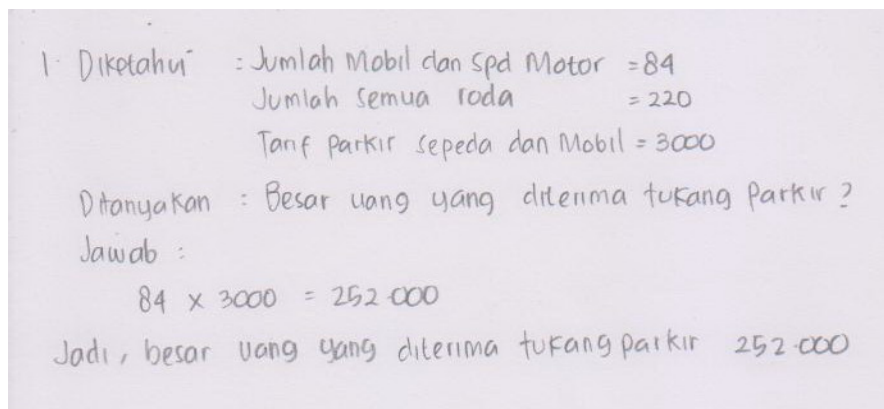 1. Diketahui : Jumlah Mobil dan Spd Motor = 84
Jumlah semua roda = 220
Tarif Parkir sepeda dan Mobil = 3000
Ditanyakan : Besar uang yang diterima tukang Parkir ?
Jawab :
84 x 3000 = 252.000
Jadi, besar uang yang diterima tukang parkir 252.000